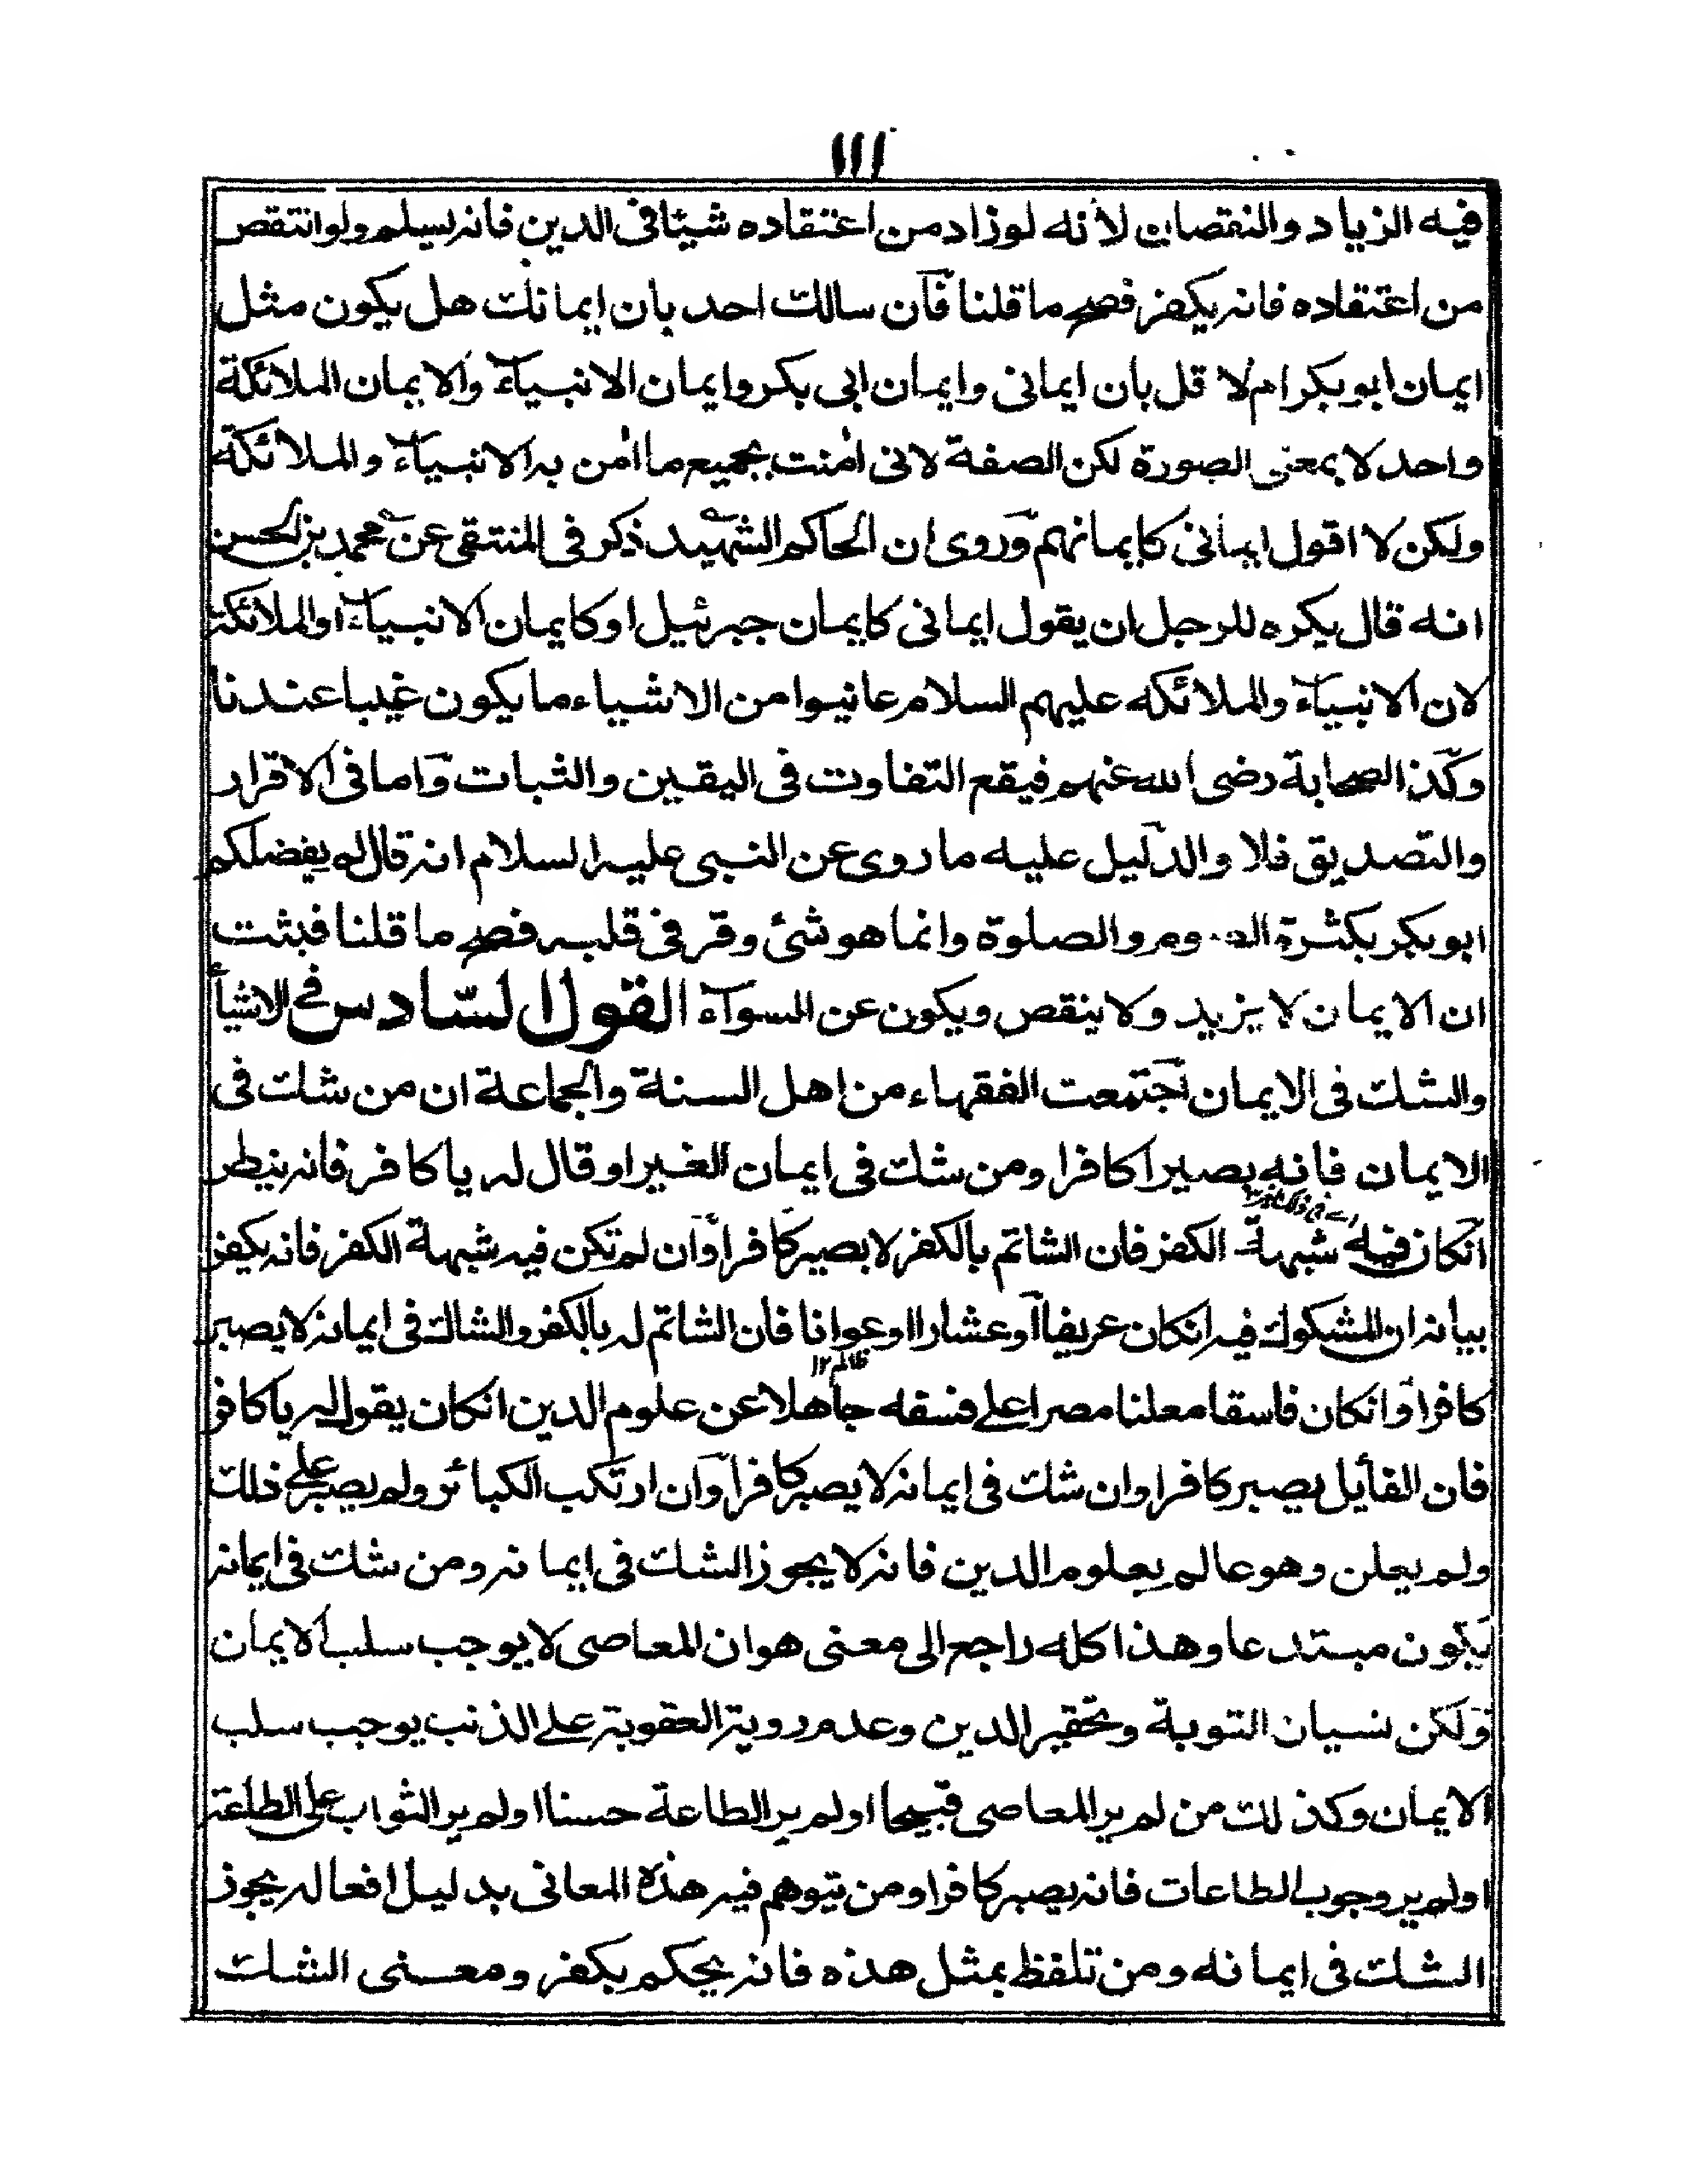 ١١١
فيه الزياد والنقصان لأنه لوزاد من اعتقاده شيئا في الدين فانه يسلم ولو انتقص
من اعتقاده فانه يكفر فصح ما قلنا فآن سالك احد بان إيمانك هل يكون مثل
ايمان ابو بكر ام لا قل بان ايمانى وايمان ابى بكر وايمان الانبياء والايمان الملائكة
واحد لا بمعنى الصورة لكن الصفة لانى اٰمنت بجميع ما اٰمن به الانبياء والملائكة
ولكن لا اقول ايمانى كايمانهم وروى ان الحاكم الشهيد ذكر فى المنتقى عن محمد بن الحسن
انه قال يكره للرجل ان يقول ايمانى كايمان جبرئيل او كايمان الانبياء او الملائكة
لان الانبياء والملائكه عليهم السلام عانيوا من الاشياء ما يكون غيبا عندنا
وكذا الصحابة رضى الله عنهم فيقع التفاوت فى اليقين والثبات واما فى الاقرار
والتصديق فلا والدليل عليه ما روى عن النبى عليه السلام انه قال لم يفضلكم
ابو بكر بكثرة الصوم والصلوة وانما هو شئ وقر فى قلبه فصح ما قلنا فبثت
ان الايمان لا يزيد ولا ينقص ويكون عن السوآء القول السّادس فى الاشيأ
والشك فى الايمان اجتمعت الفقهاء من اهل السنة والجماعة ان من شك فى
الايمان فانه يصير اكافرا ومن شك فى ايمان الغير او قال له يا كافر فانه ينظر
انكان فيه شبهة الكفر فان الشاتم بالكفر لا يصير كافرا وان لم تكن فيه شبهة الكفر فانه يكفر
بيانه ان المشكوك فيه انكان عريفا او عشارا او عوانا فان الشاتم له بالكفر والشاك فى ايمانه لا يصير
ظالم ١٢
كافرا وانكان فاسقا معلنا مصرا على فسقه جاهلا عن علوم الدين انكان يقول له يا كافر
فان القأيل يصير كافرا وان شك فى ايمانه لا يصير كافرا وان ارتكب الكبائر ولم يصر على ذلك
ولم يعلن وهو عالم بعلوم الدين فانه لا يجوز الشك فى ايمانه ومن شك فى ايمانه
يكون مبتدعا وهذا كله راجع الى معنى هو ان المعاصى لا يوجب سلب الايمان
ولكن نسيان التوبة وتحقير الدين وعدم روية العقوبة على الذنب يوجب سلب
الايمان وكذلك من لم ير المعاصى قبيحا او لم ير الطاعة حسنا او لم ير الثواب على الطاعة
او لم ير وجوب الطاعات فانه يصير كافرا ومن يتوهم فيه هذه المعانى بدليل افعاله يجوز
الشك فى ايمانه ومن تلفظ بمثل هذه فانه يحكم بكفر ومعنى الشك